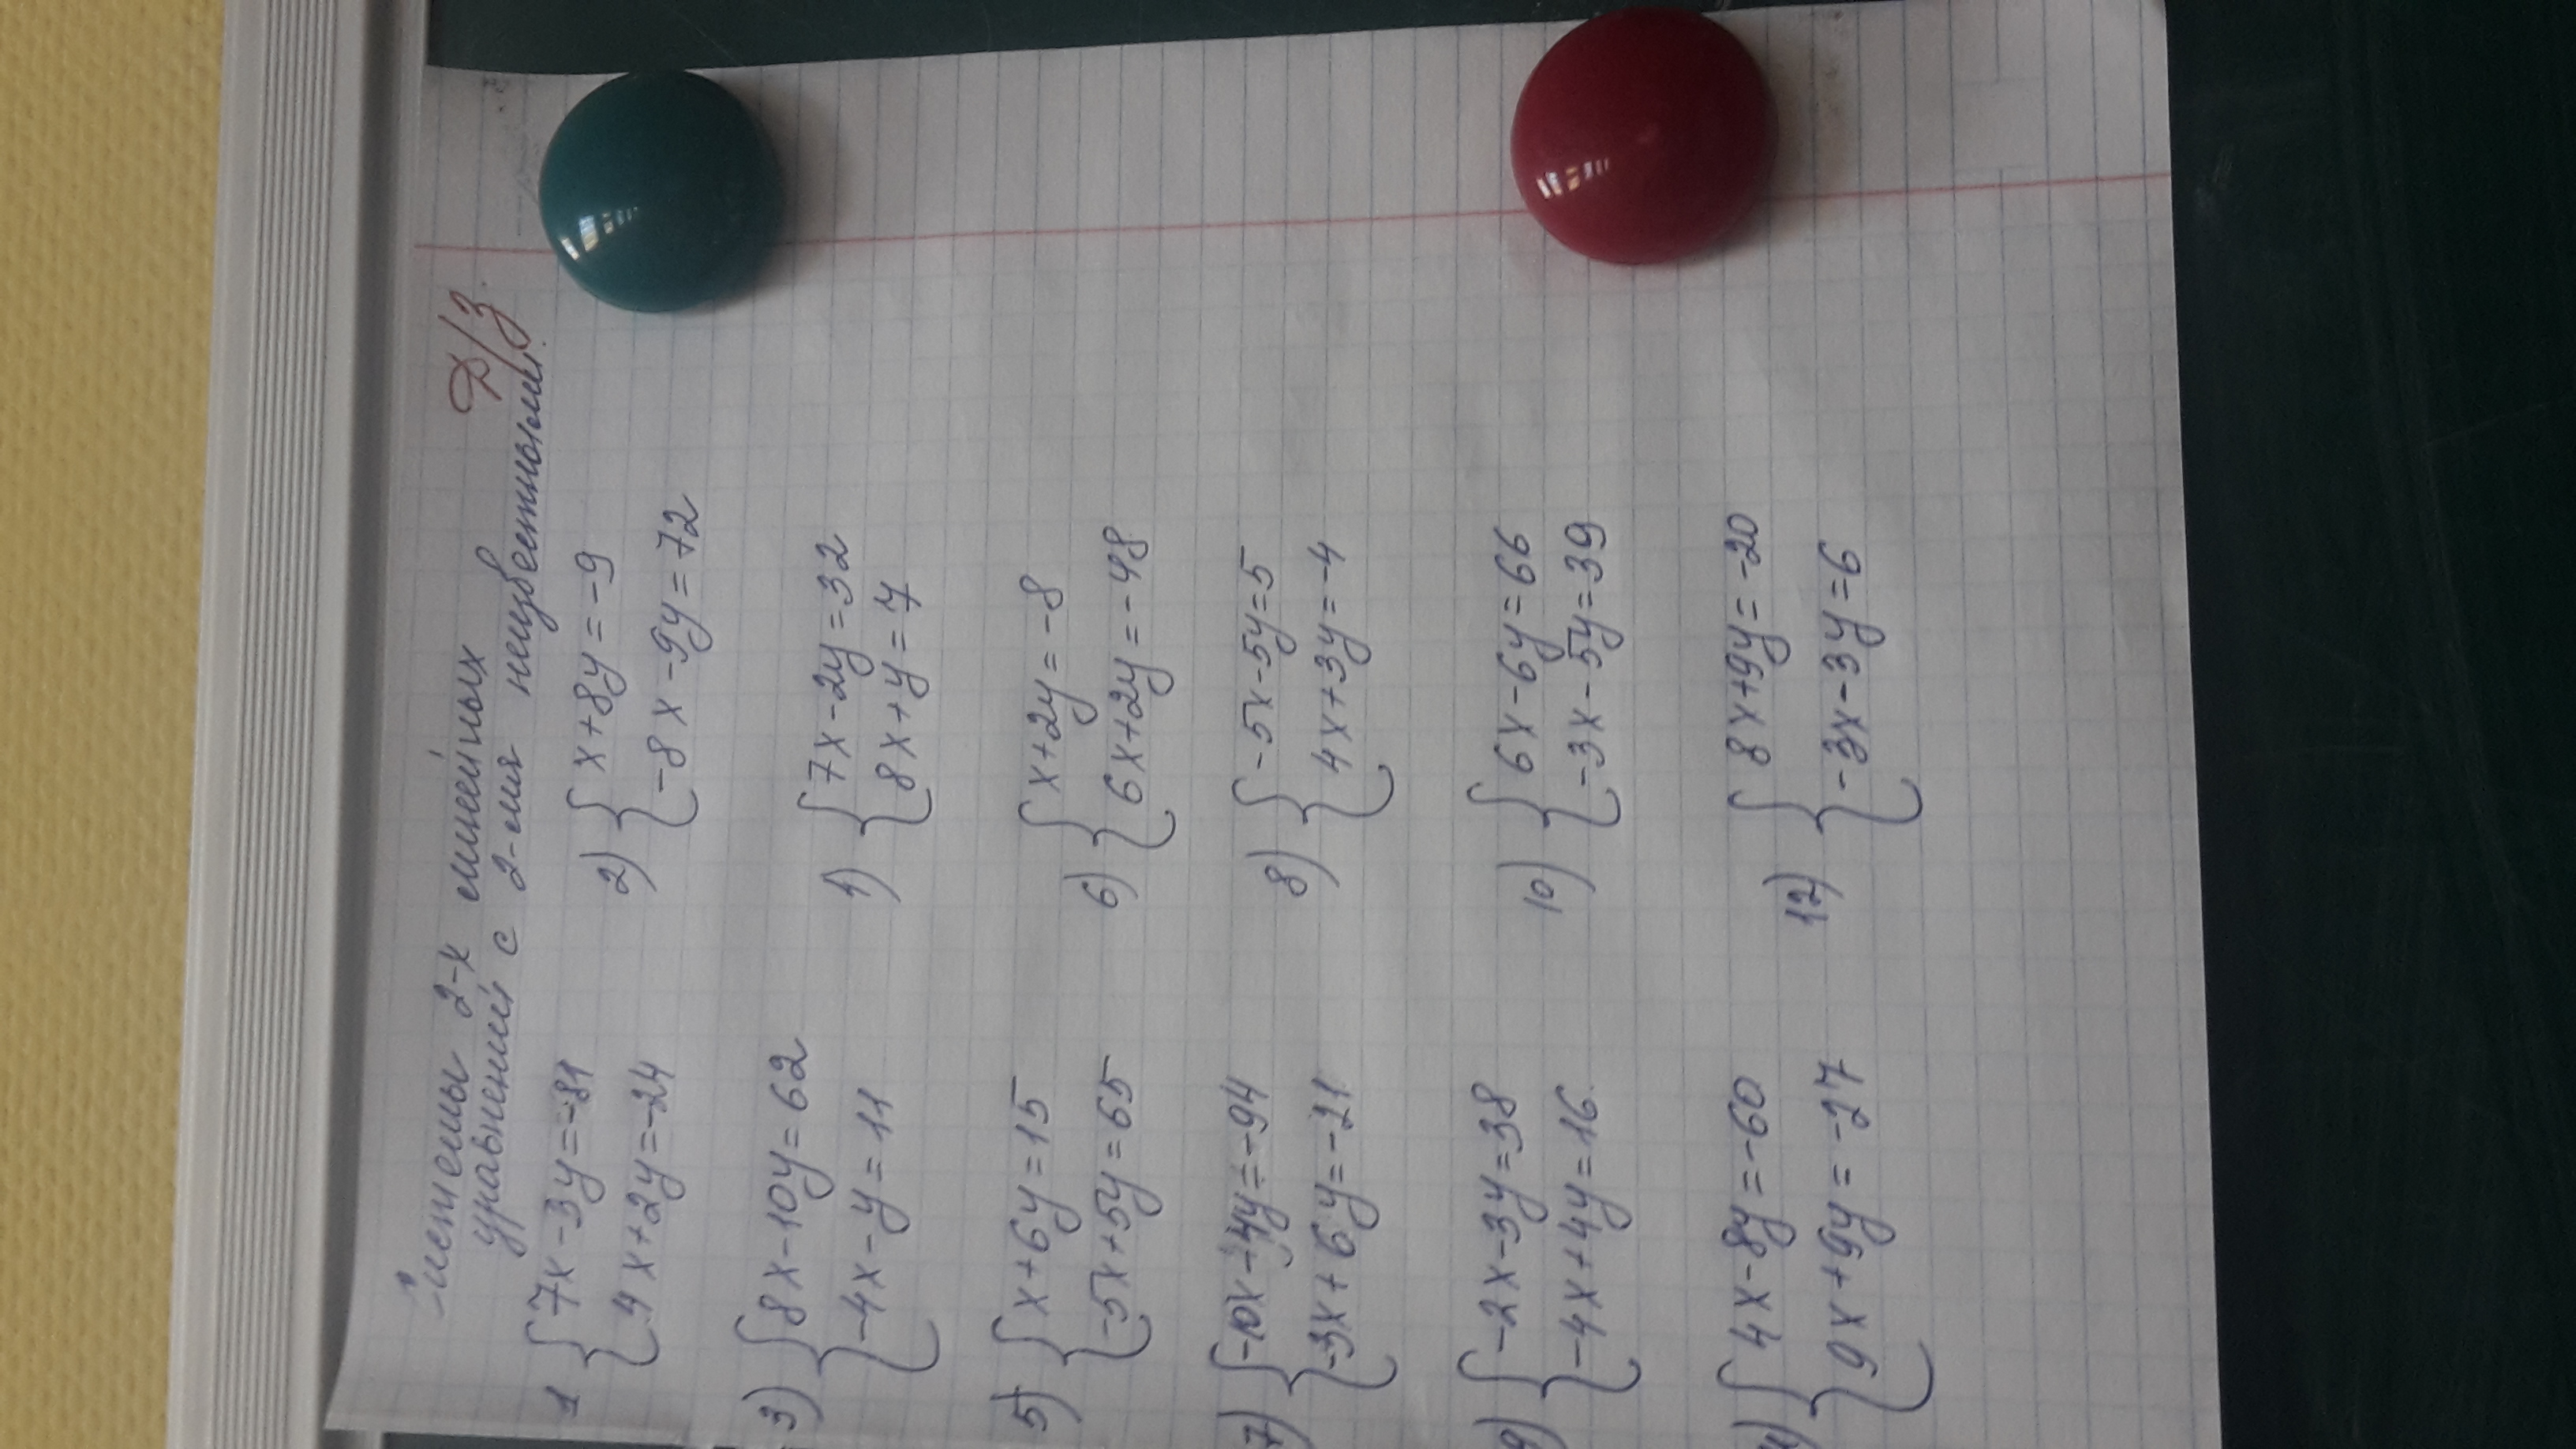 Д/з.
Системы 2-х линейных
уравнений с 2-мя неизвестными.
1 { 7x-3y=-81
4x+2y=-24
2) { x+8y=-9
-8x-9y=72
3) { 8x-10y=62
-4x-y=11
4) { 7x-2y=32
8x+y=7
5) { x+6y=15
-5x+5y=65
6) { x+2y=-8
6x+2y=-48
7) { -10x-4y=-94
-3x+6y=-21
8) { -5x-5y=5
4x+3y=-4
9) { -2x-3y=38
-4x+4y=16
10) { 6x-6y=66
-3x-5y=39
{ 4x-8y=-60
9x+9y=-27
12) { 8x+9y=-20
-3x-3y=6